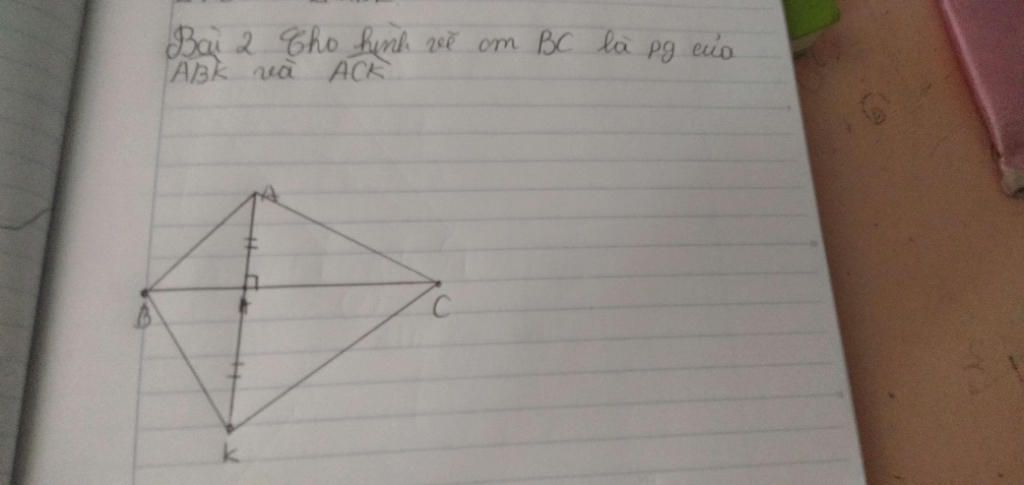 Bài 2 Cho hình vẽ cm BC là pg của
ABK và ACK
A
B
H
C
K